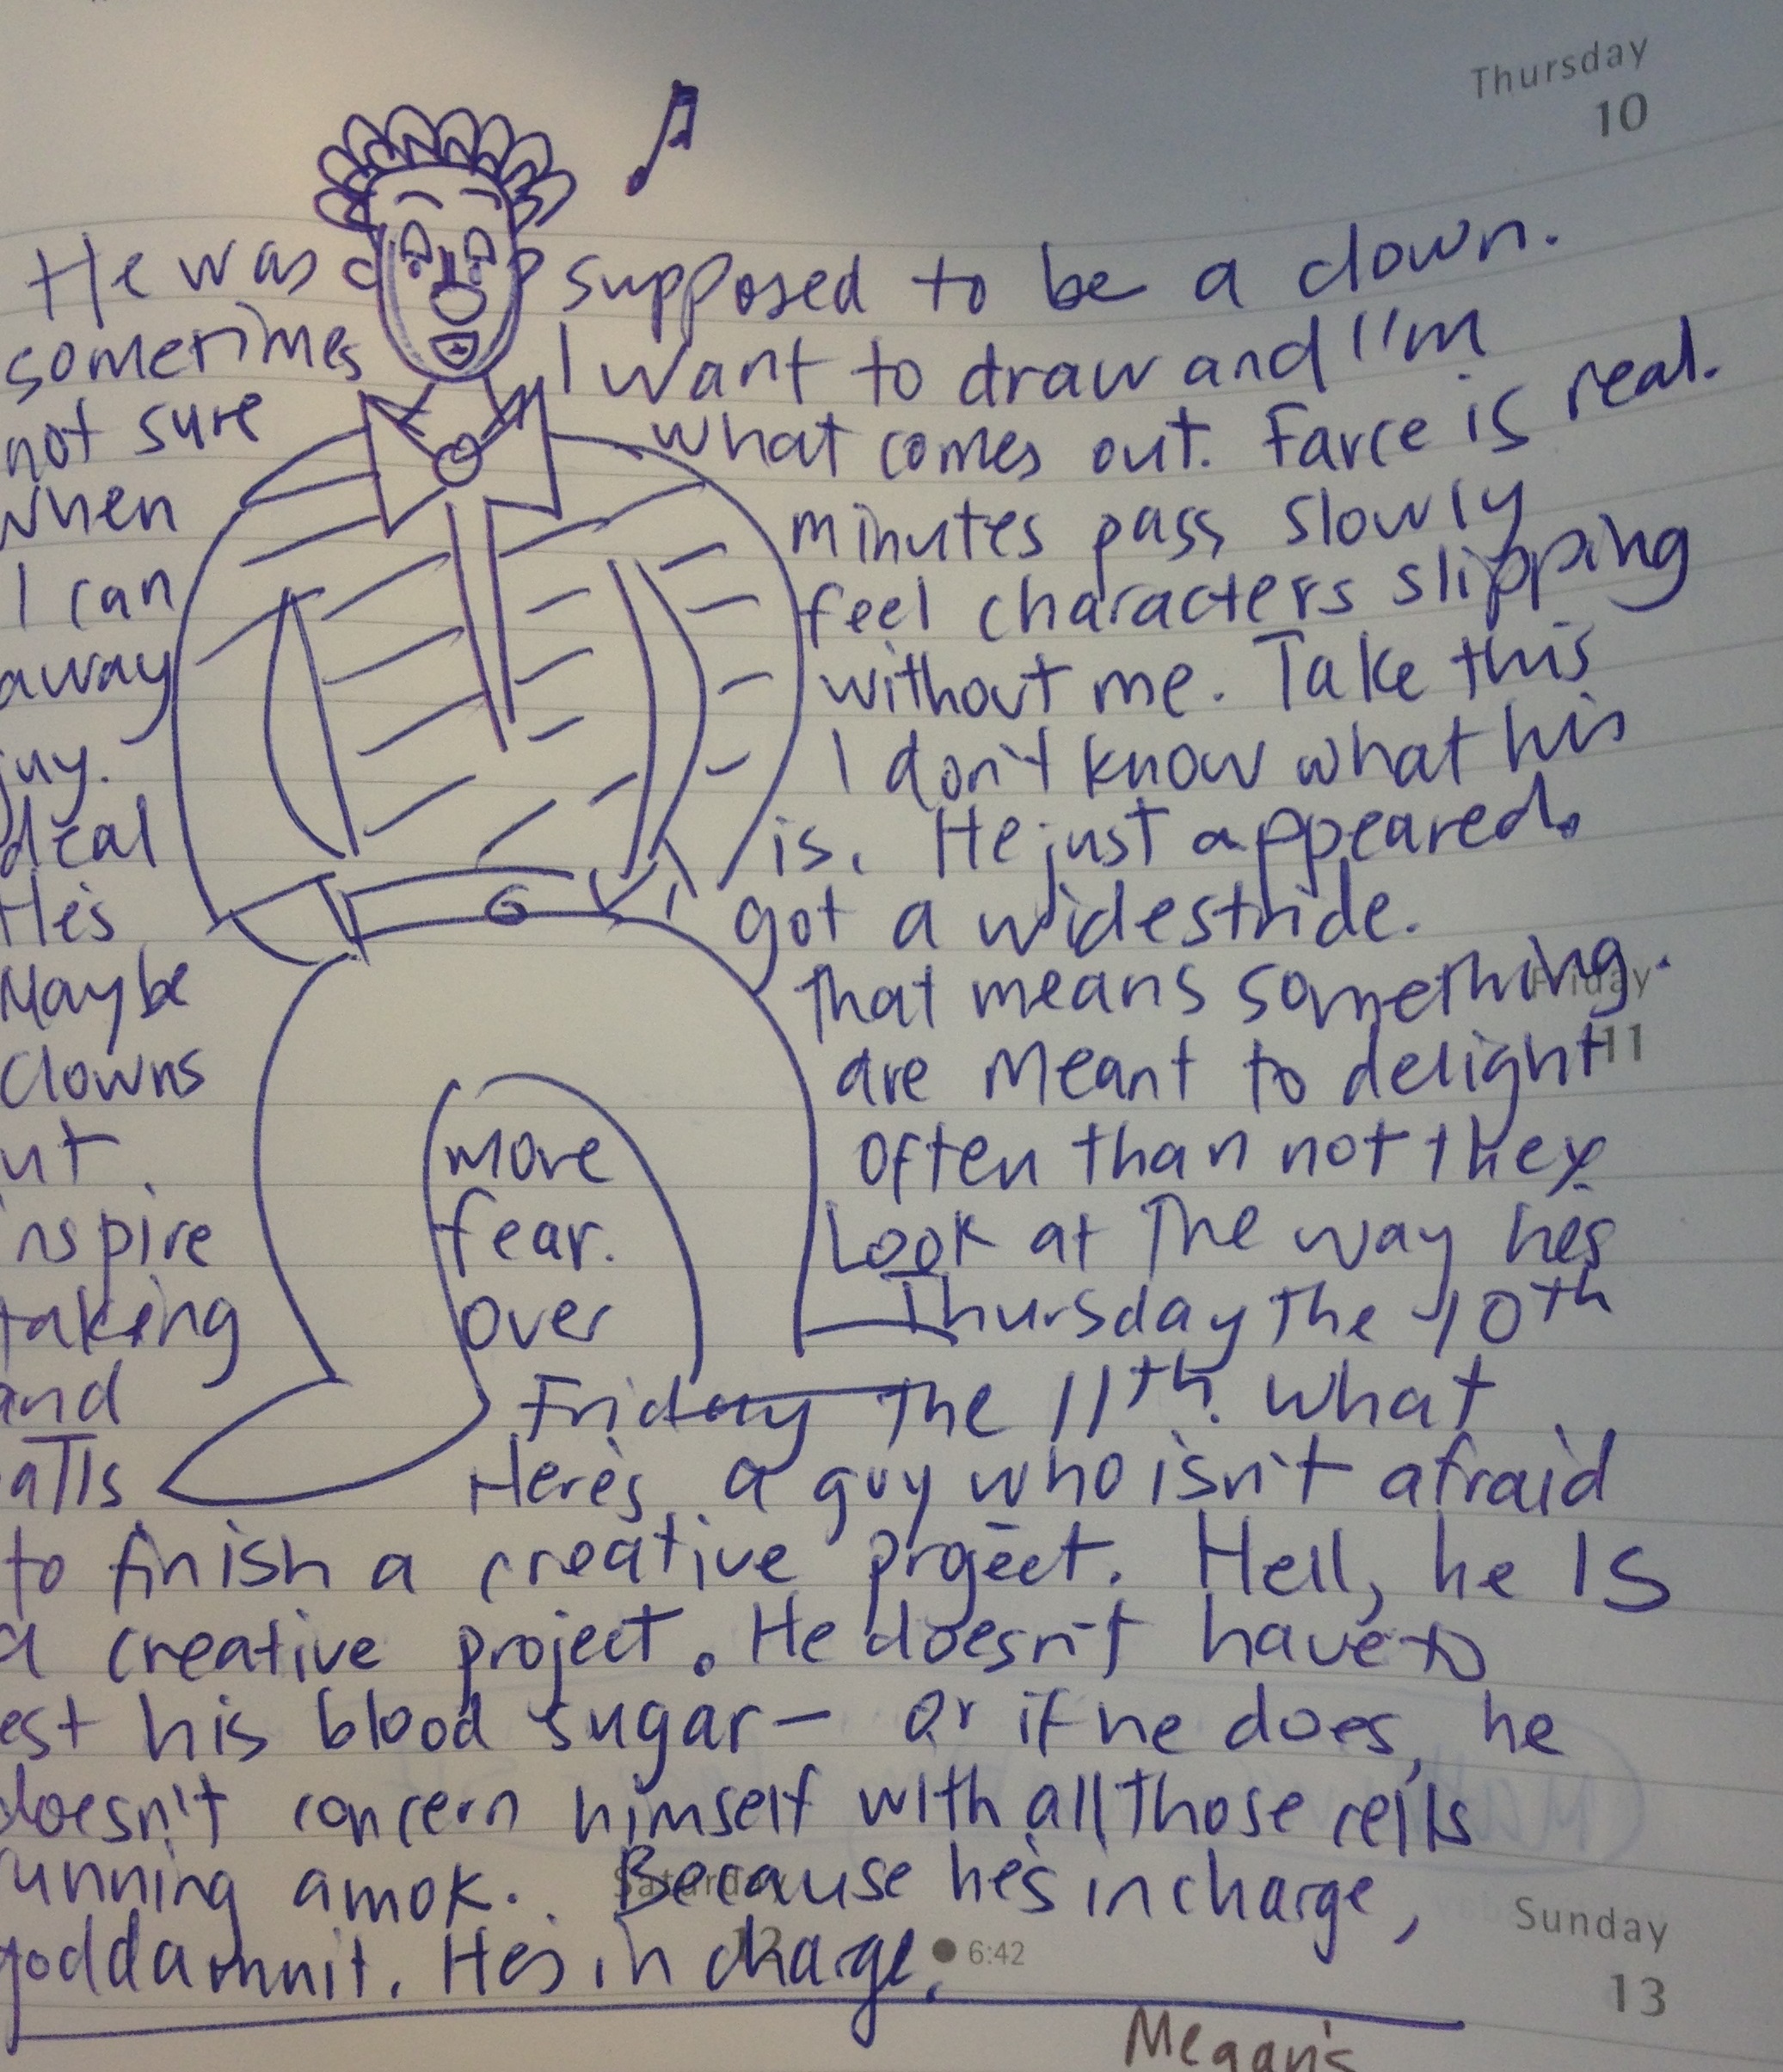 Thursday
10
He was supposed to be a clown.
sometimes I want to draw and I'm
not sure what comes out. Farce is real.
when minutes pass slowly
I can feel characters slipping
away without me. Take this
uy. I don't know what his
deal is. He just appeared.
He's got a wide stride.
Maybe that means something.
Friday
11
Clowns are meant to delight
ut more often than not they
nspire fear. Look at the way he's
taking over Thursday the 10th
and Friday the 11th. What
alls Here's a guy who isn't afraid
to finish a creative project. Hell, he IS
a creative project. He doesn't have to
est his blood sugar - or if he does, he
doesn't concern himself with all those cells
unning amok. Because he's in charge,
Saturday
12
goddamnit. He's in charge.
6:42
Sunday
13
Megan's